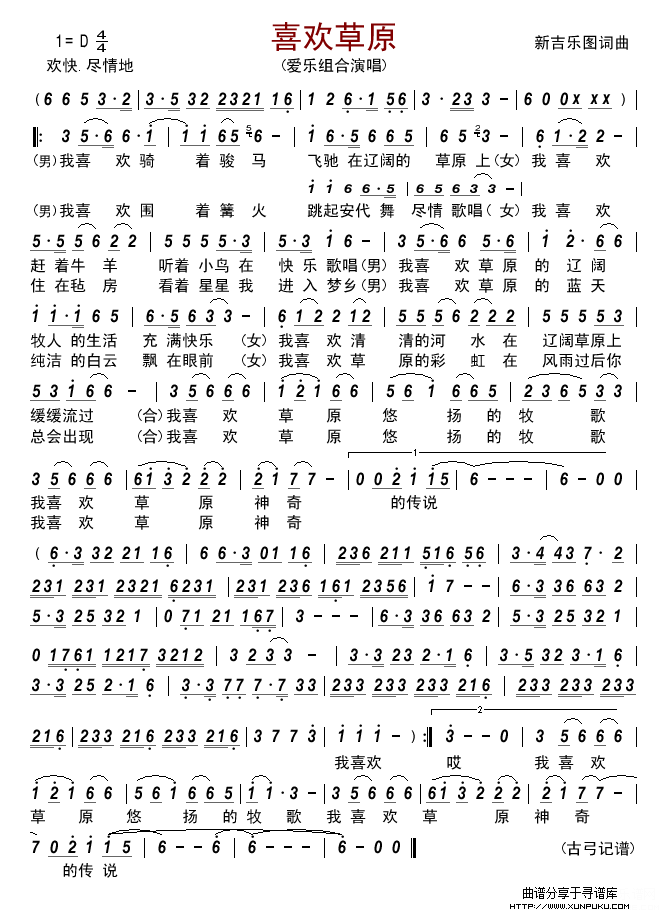 喜欢草原
1= D 4/4
新吉乐图词曲
欢快.尽情地
(爱乐组合演唱)
( 6 6 5 3·2 | 3·5 32 2321 16 | 1 2 6·1 56 | 3 · 23 3 - | 6 0 0x xx )
‖: 3 5·6 6·1 | 1 16 5 5 6 - | 16·5 665 | 65 5 2 3 - | 6 1·22 -
(男)我喜 欢 骑 着 骏 马 飞驰 在辽阔的 草原 上(女)我 喜 欢
1 1 6 6·5 | 65 65 63 3 - |
(男)我喜 欢 围 着 篝 火 跳起安代 舞 尽情 歌唱(女)我 喜 欢
5·5 5 6 2 2 | 5 5 5 5·3 | 5·3 2 1 - | 3 5·6 6 5·6 | 1 2·6 6
赶 着牛 羊 听着 小鸟 在 快 乐 歌唱(男)我喜 欢 草 原 的 辽 阔
住 在毡 房 看着 星星 我 进 入 梦乡(男)我喜 欢 草 原 的 蓝 天
1 1·1 6 5 | 6·5 6 3 3 - | 6 1 2 2 1 2 | 5 5 5 6 2 2 2 | 5 5 5 3 5
牧人 的生活 充 满快乐 (女)我喜 欢 清 清的河 水 在 辽阔草原上
纯洁 的白云 飘 在眼前 (女)我喜 欢 草 原的彩 虹 在 风雨过后你
5 3 1 6 6 - | 3 5 6 6 6 | 1 2 1 6 6 | 5 6 1 6 6 5 | 2 3 6 5 3 3
缓缓流过 (合)我喜 欢 草 原 悠 扬 的 牧 歌
总会出现 (合)我喜 欢 草 原 悠 扬 的 牧 歌
3 5 6 6 6 | 61 3 2 2 2 | 2 1 7 7 - | 0 0 2 1 15 | 6 - - - | 6 - 0 0
我喜 欢 草 原 神 奇 的传说
我喜 欢 草 原 神 奇
( 6·3 32 21 16 | 6 6·3 01 16 | 236 211 516 56 | 3·4 43 7·2
231 231 2321 6231 | 231 236 161 2356 | 1 7 - - | 6·3 36 63 2
5·3 25 32 1 | 0 71 21 167 | 3 - - - | 6·3 36 63 2 | 5·3 25 32 1
0 1761 1217 3212 | 3 2 3 3 - | 3·3 23 2·1 6 | 3·5 32 3·1 6
3·3 25 2·1 6 | 3·3 77 7·7 33 | 233 233 233 216 | 233 233 233
216 | 233 216 233 216 | 3 7 7 3 | 1 1 1 - ) :‖ 3 - - 0 | 3 5 6 6 6
我喜欢 哎 我 喜 欢
1 2 1 6 6 | 5 6 1 6 6 5 | 1 1·3 - | 3 5 6 6 6 | 61 3 2 2 2 | 2 1 7 7 -
草 原 悠 扬 的 牧 歌 我 喜 欢 草 原 神 奇
7 0 2 1 15 | 6 - - - | 6 - - - | 6 - 0 0 ‖
(古弓记谱)
的 传说
曲谱分享于寻谱库
HTTP://WWW.XUNPUKU.COM